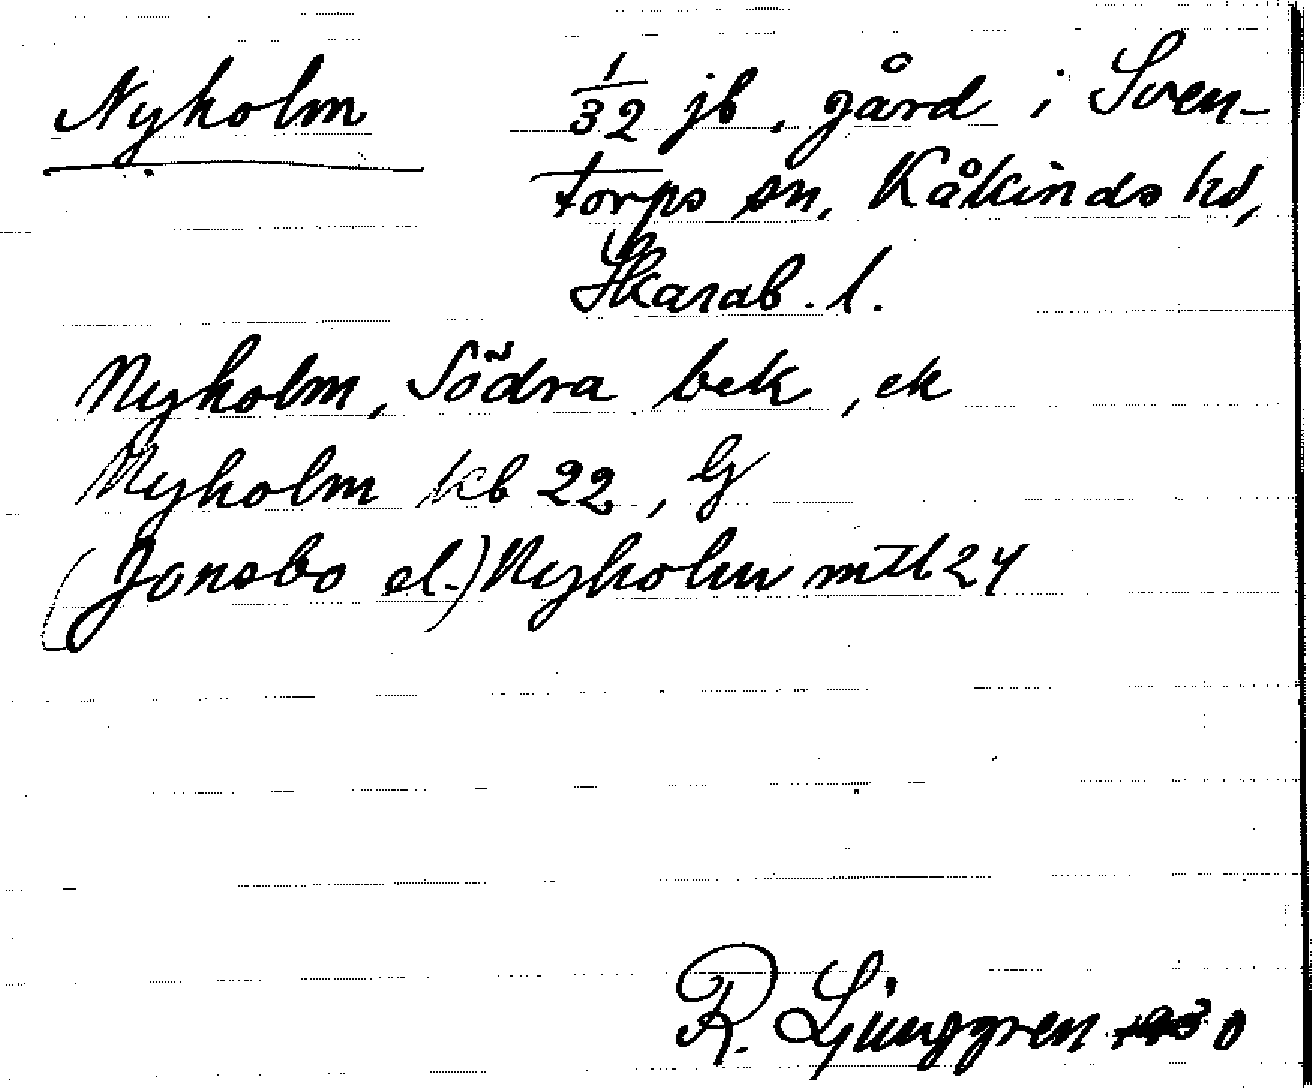 Nyholm 1/32 jb, gård i Sven-
torps sn, Kåkinds hd,
Skarab. l.
Nyholm, Södra bek, ek
Nyholm kb 22, G
(Jonsbo el.) Nyholm mtl 24
R. Ljunggren 1930